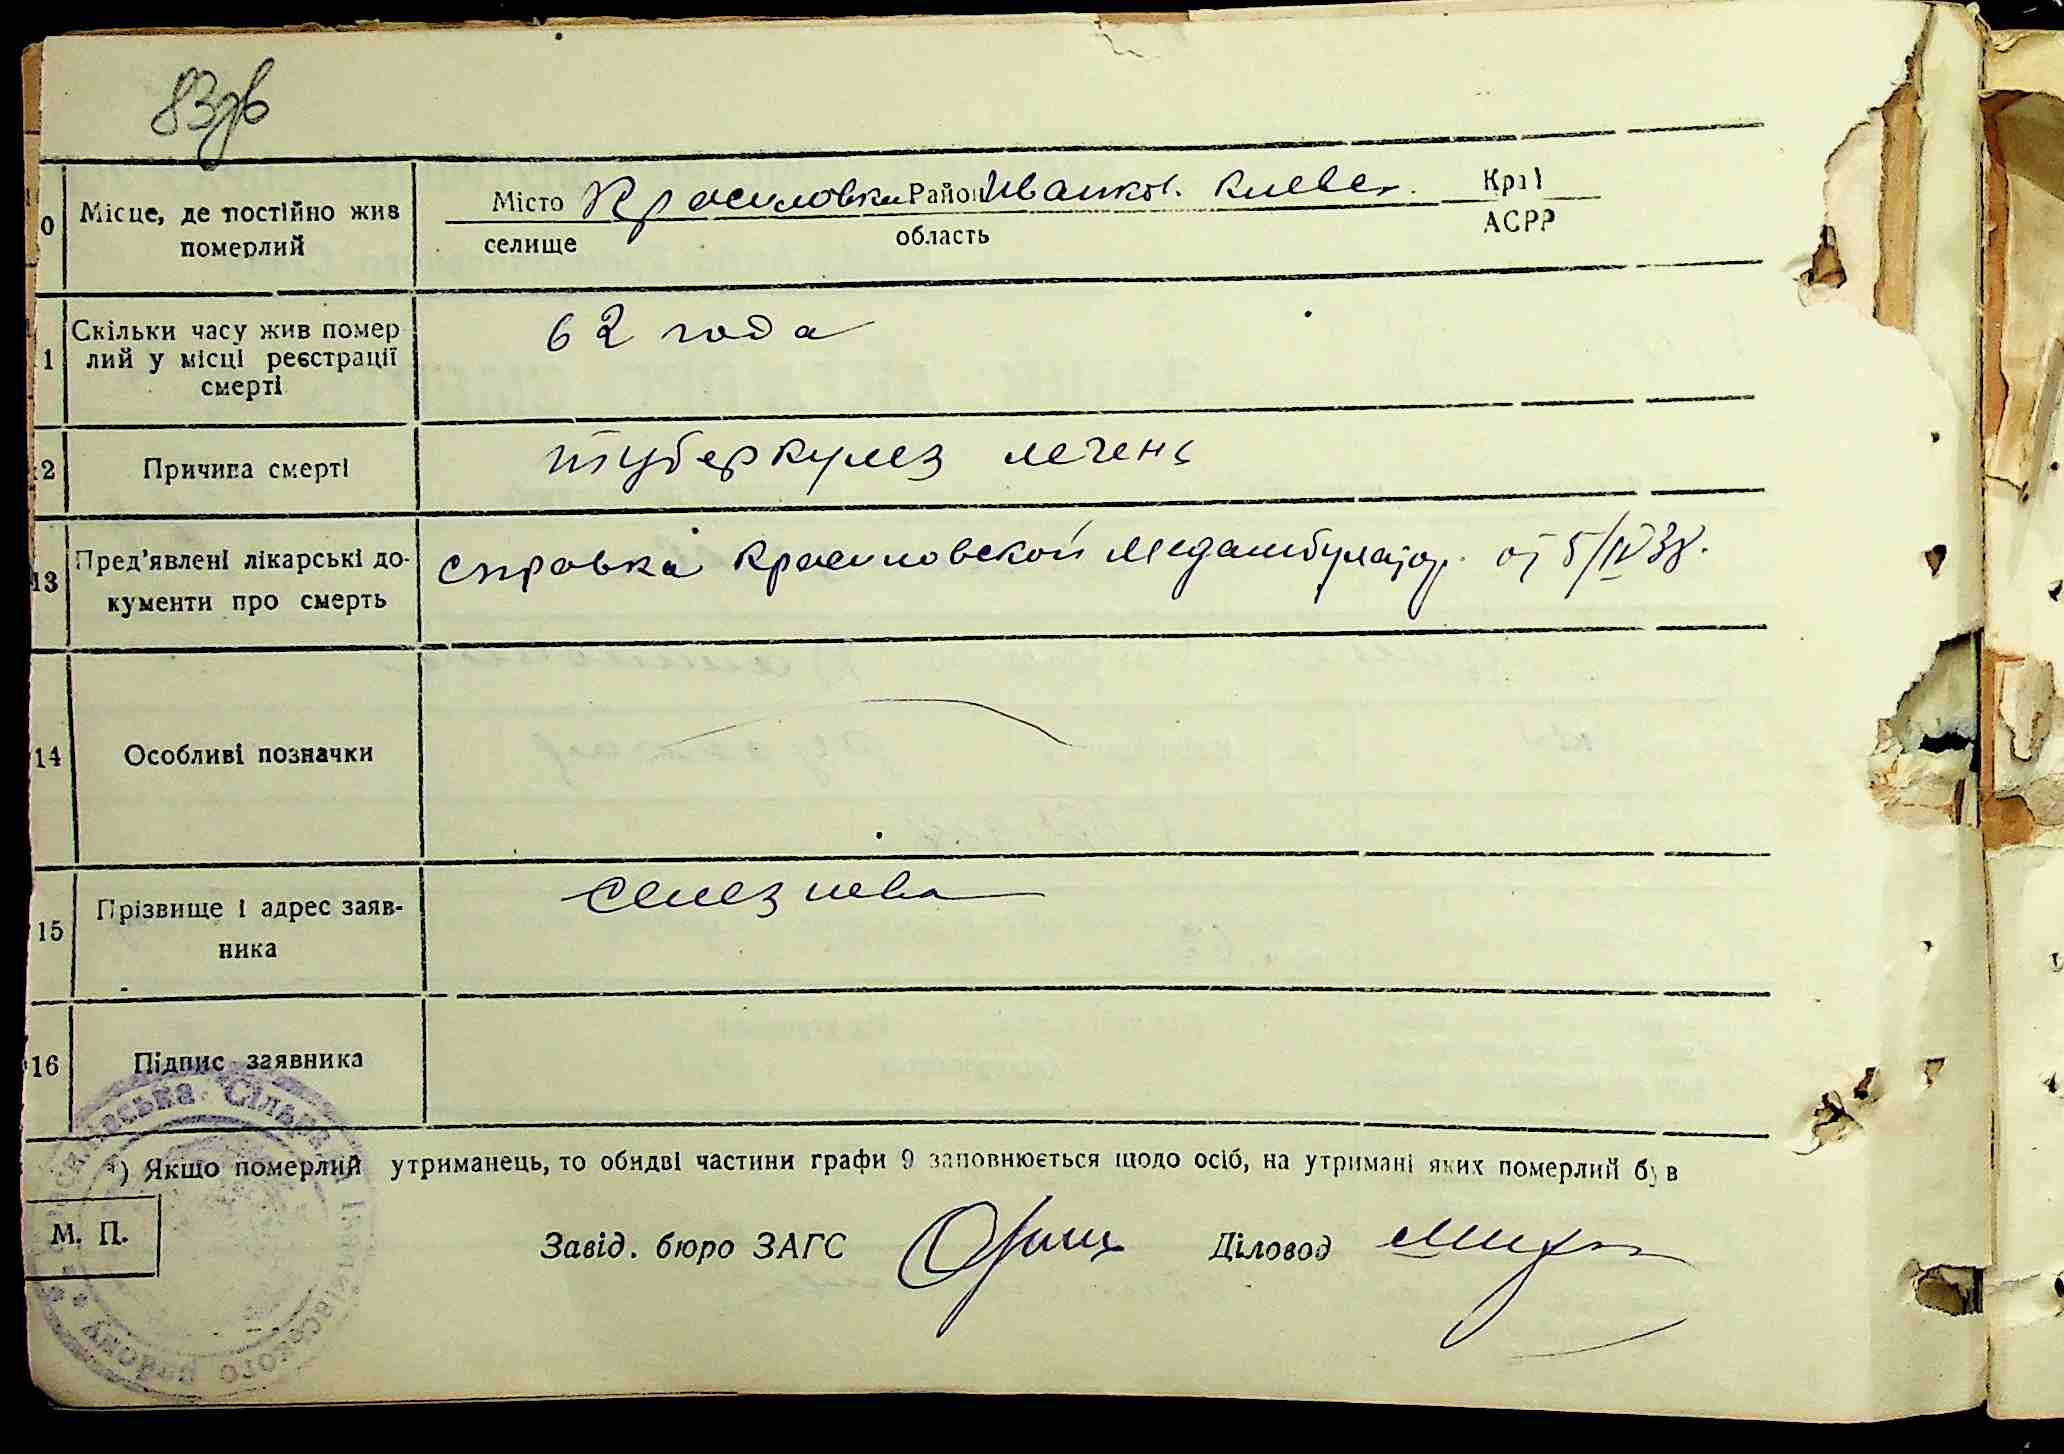 83зв
Місто Красиловка Район Иванков. Киевск. Край
селище область АСРР
10 Місце, де постійно жив
померлий
1 Скільки часу жив помер
лий у місці реєстрації
смерті
62 года
12 Причина смерті туберкулез печень
13 Пред'явлені лікарські до-
кументи про смерть
справка Красиловской Медамбулатор. от 5/IV 38.
14 Особливі позначки
15 Прізвище і адрес заяв-
ника
Селезнева
16 Підпис заявника
*) Якщо померлий утриманець, то обидві частини графи 9 заповнюється щодо осіб, на утримані яких померлий був
М. П.
Завід. бюро ЗАГС Діловод
Сільрада Іванківського району